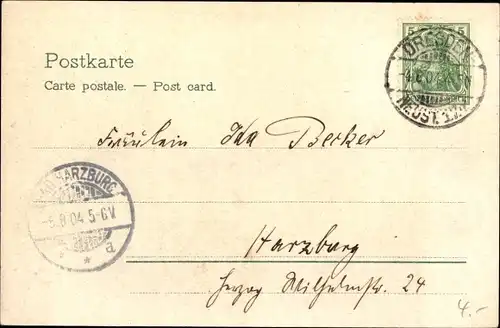 Postkarte
Carte postale. — Post card.
5 5
DRESDEN
NEUST.
Fräulein Ida Berker
HARZBURG
5-6V
a
Harzburg
Herzog Wilhelmstr. 24
4.-